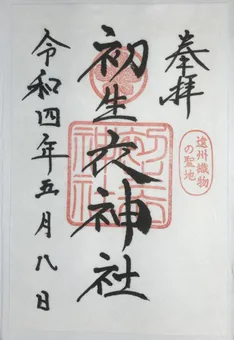 奉拝
遠州織物
の聖地
初生衣神社
令和四年五月八日